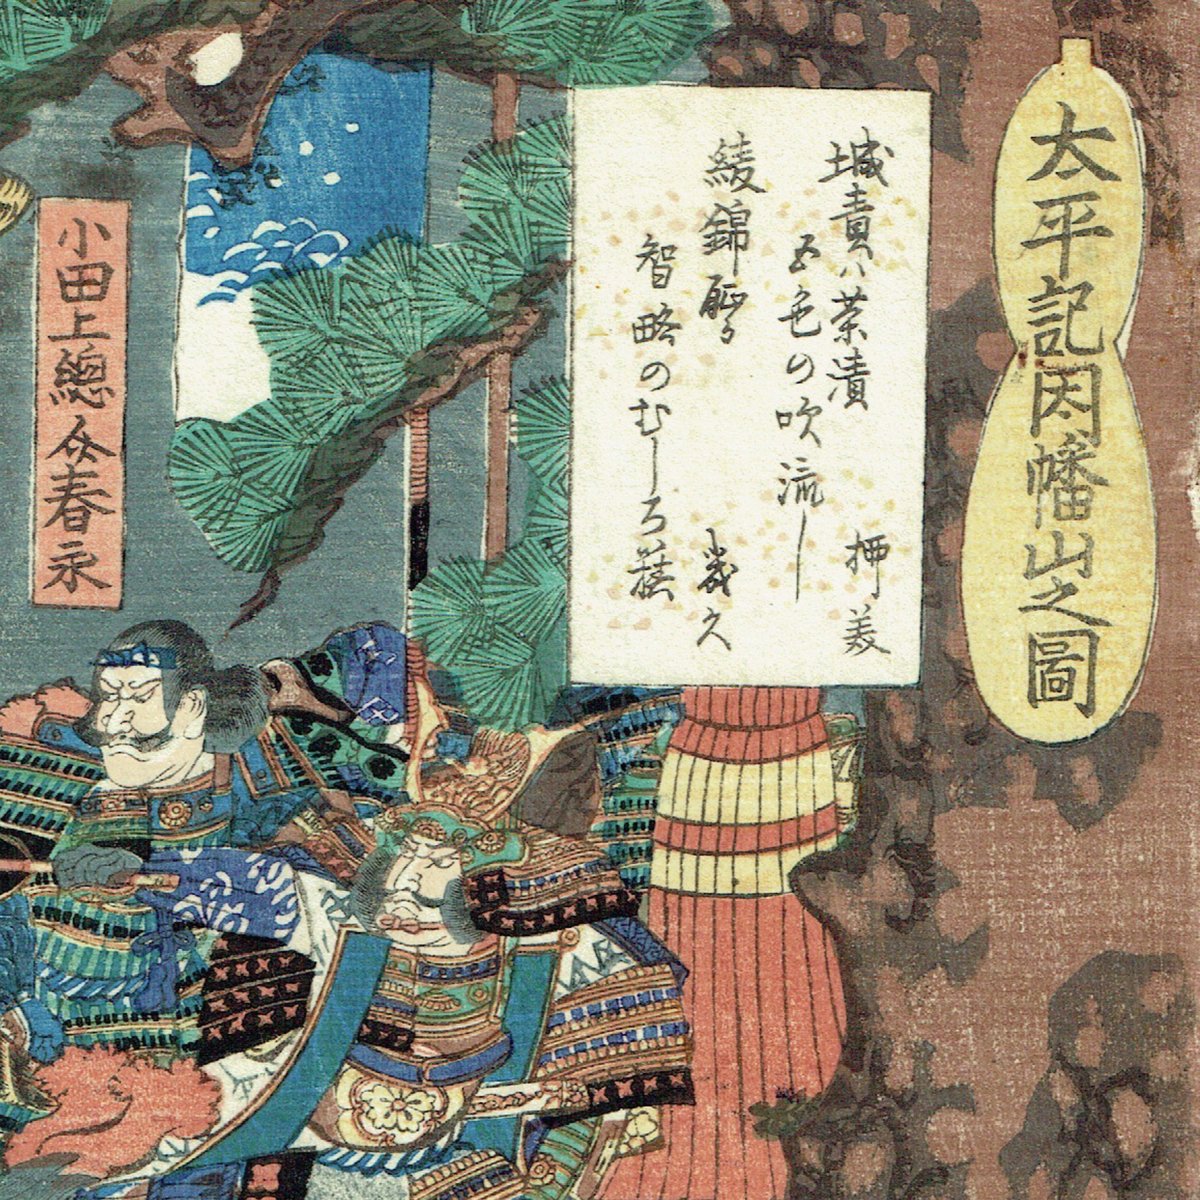 太平記因幡山之圖
城責ハ茶漬
五色の吹流し
綾錦
幾久
智略のむしろ旗
小田上總介春永